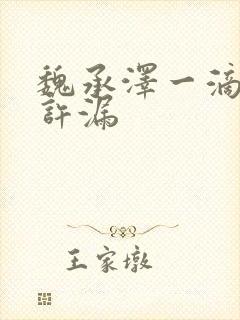 魏承澤一滴
許漏
王家墩